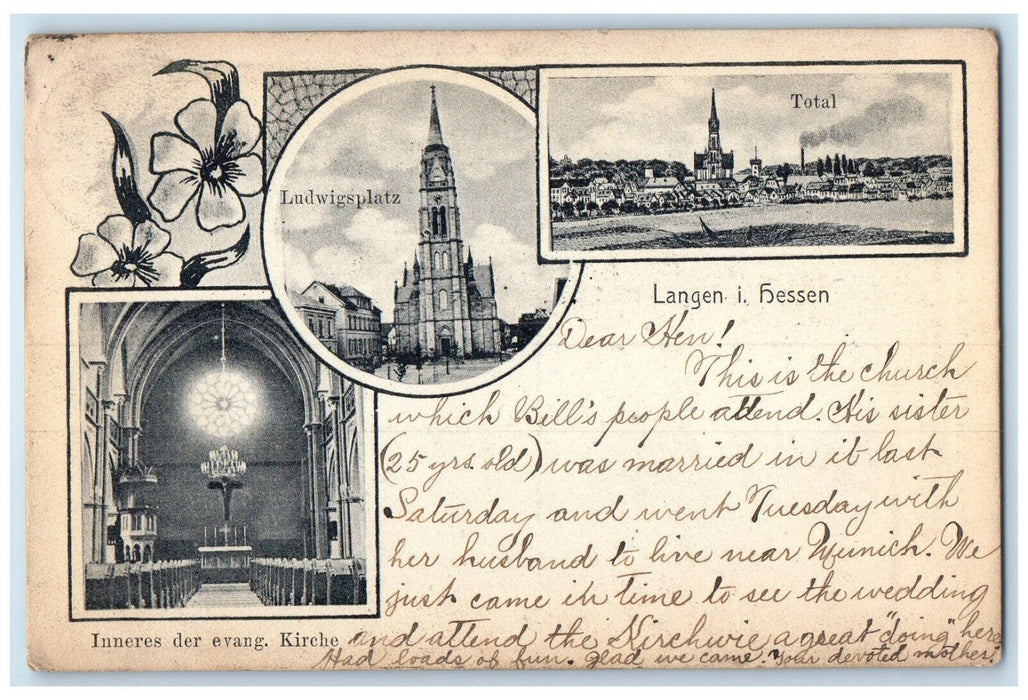 Total
Ludwigsplatz
Langen i. Hessen
Dear Hen!
This is the church
which Bill's people attend. His sister
(25 yrs. old) was married in it last
Saturday and went Tuesday with
her husband to live near Munich. We
just came in time to see the wedding
Inneres der evang. Kirche
and attend the Kirchwie a great "doing" here
Had loads of fun. glad we came. Your devoted mother.